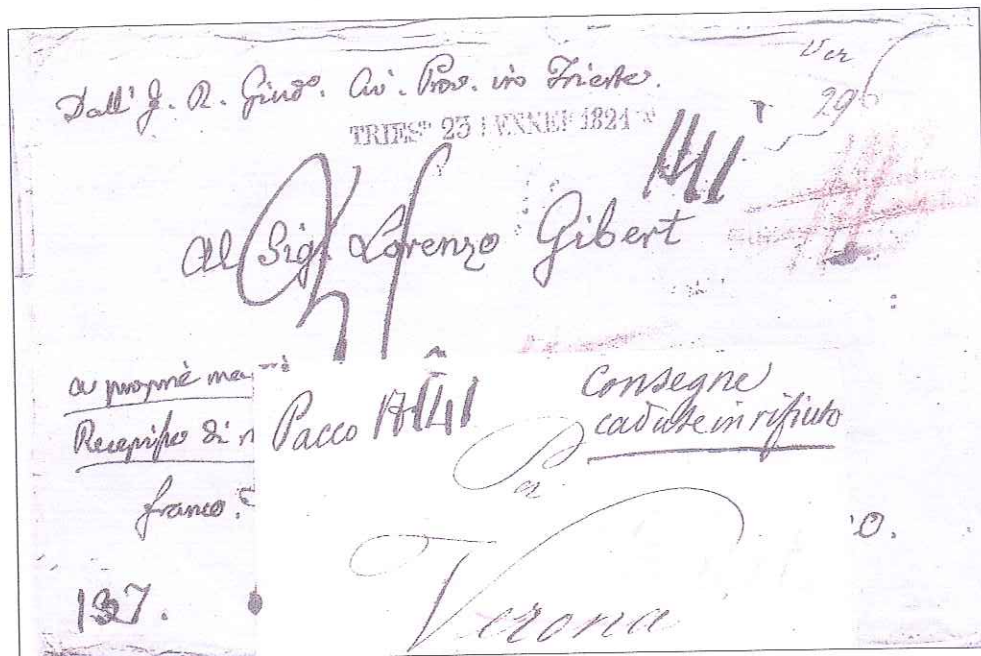 Dall' J. R. Giud.º Civ. Prov. in Trieste.
Ver
296
TRIEST 23 GENNEI 1821
Al Sig. Lorenzo Gibert
a proprie
Recepisse di
franco.
Pacco
Consegne
cadute in rifiuto
O.
137.
Verona